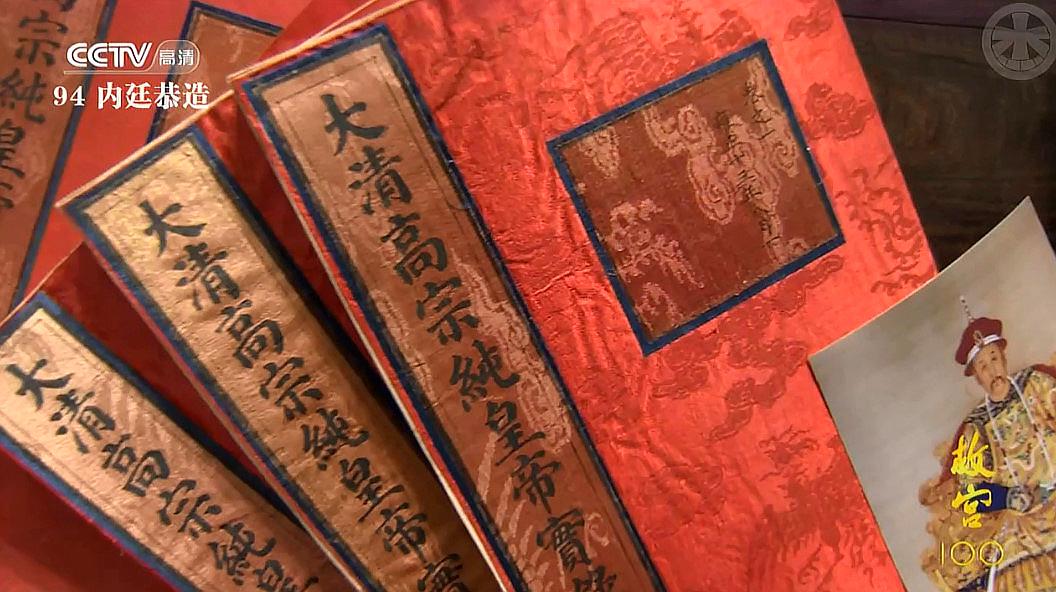 CCTV 高清
94 内廷恭造
宗純皇
大清高宗純皇帝實錄
大清高宗純皇帝實
大清高宗純皇
故宫
100